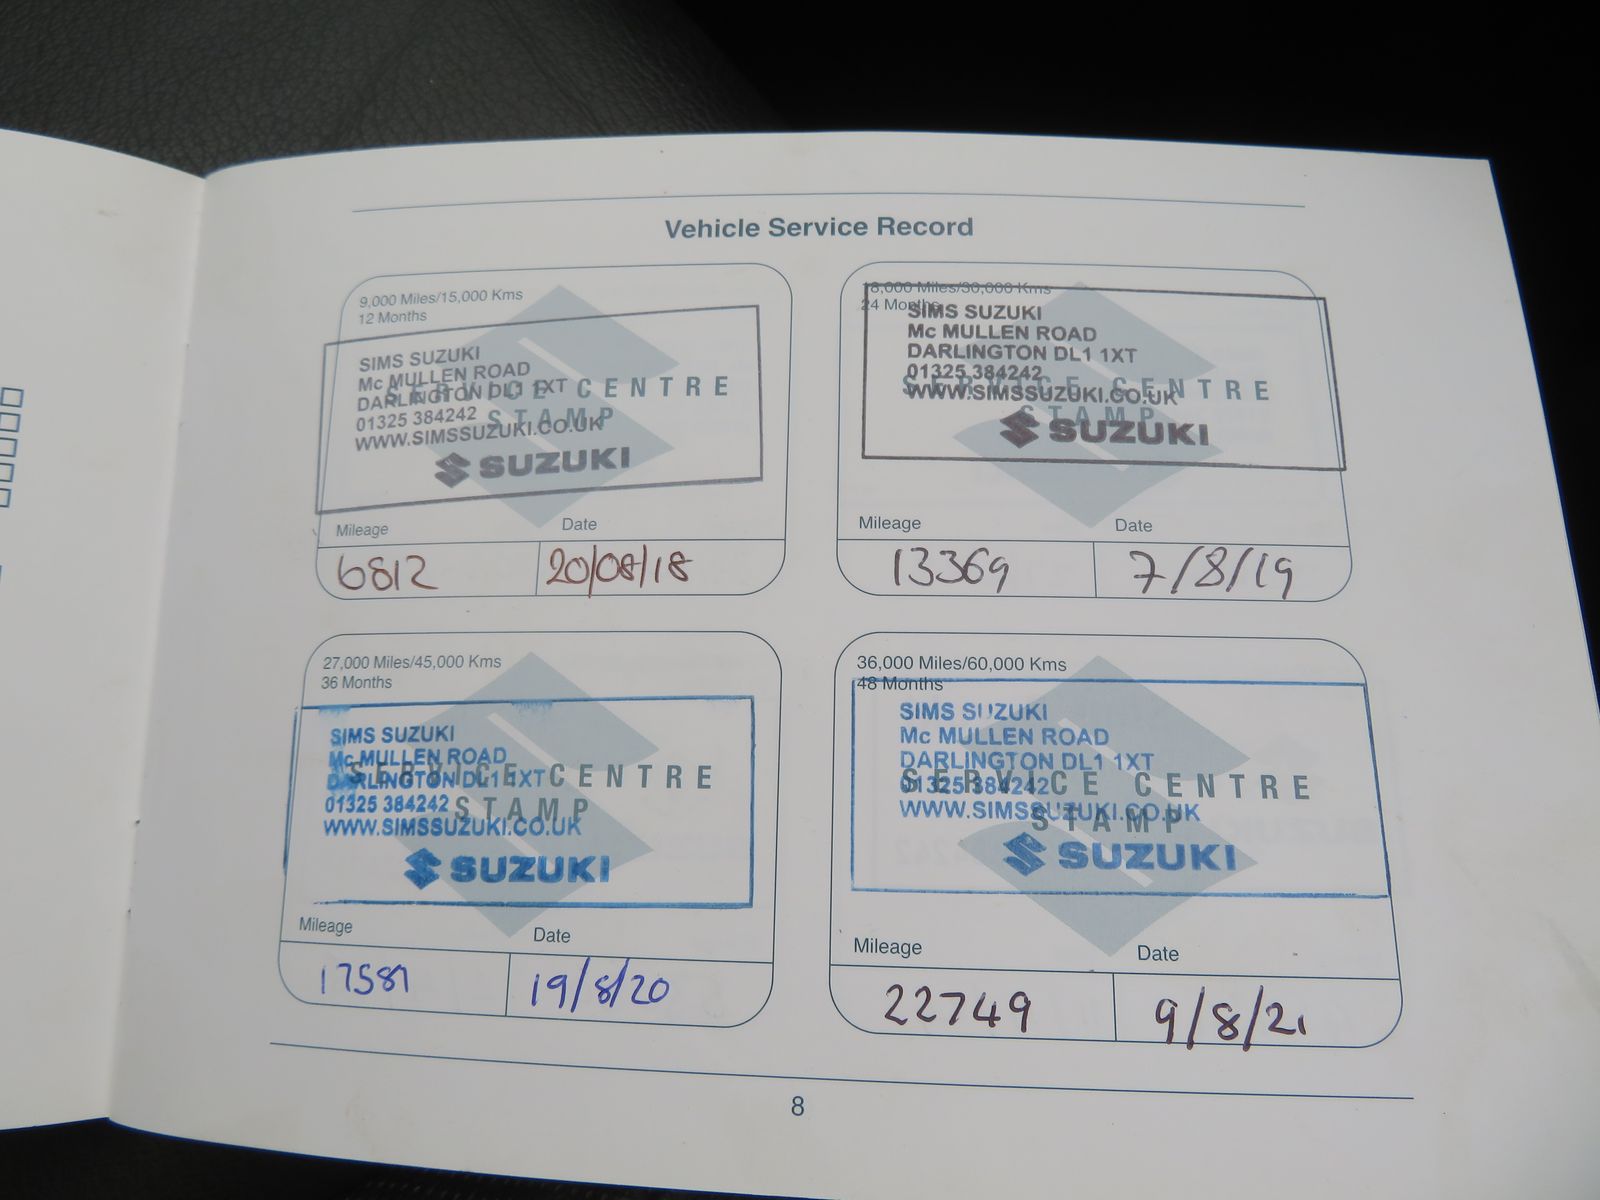 Vehicle Service Record
9,000 Miles/15,000 Kms
12 Months
SIMS SUZUKI
Mc MULLEN ROAD
DARLINGTON DL1 1XT
01325 384242
WWW.SIMSSUZUKI.CO.UK
SUZUKI
SERVICE CENTRE
STAMP
Mileage Date
6812 20/08/18
18,000 Miles/30,000 Kms
24 Months
SIMS SUZUKI
Mc MULLEN ROAD
DARLINGTON DL1 1XT
01325 384242
WWW.SIMSSUZUKI.CO.UK
SUZUKI
SERVICE CENTRE
STAMP
Mileage Date
13369 7/8/19
27,000 Miles/45,000 Kms
36 Months
SIMS SUZUKI
Mc MULLEN ROAD
DARLINGTON DL1 1XT
01325 384242
WWW.SIMSSUZUKI.CO.UK
SUZUKI
SERVICE CENTRE
STAMP
Mileage Date
17581 19/8/20
36,000 Miles/60,000 Kms
48 Months
SIMS SUZUKI
Mc MULLEN ROAD
DARLINGTON DL1 1XT
01325 384242
WWW.SIMSSUZUKI.CO.UK
SUZUKI
SERVICE CENTRE
STAMP
Mileage Date
22749 9/8/21
8